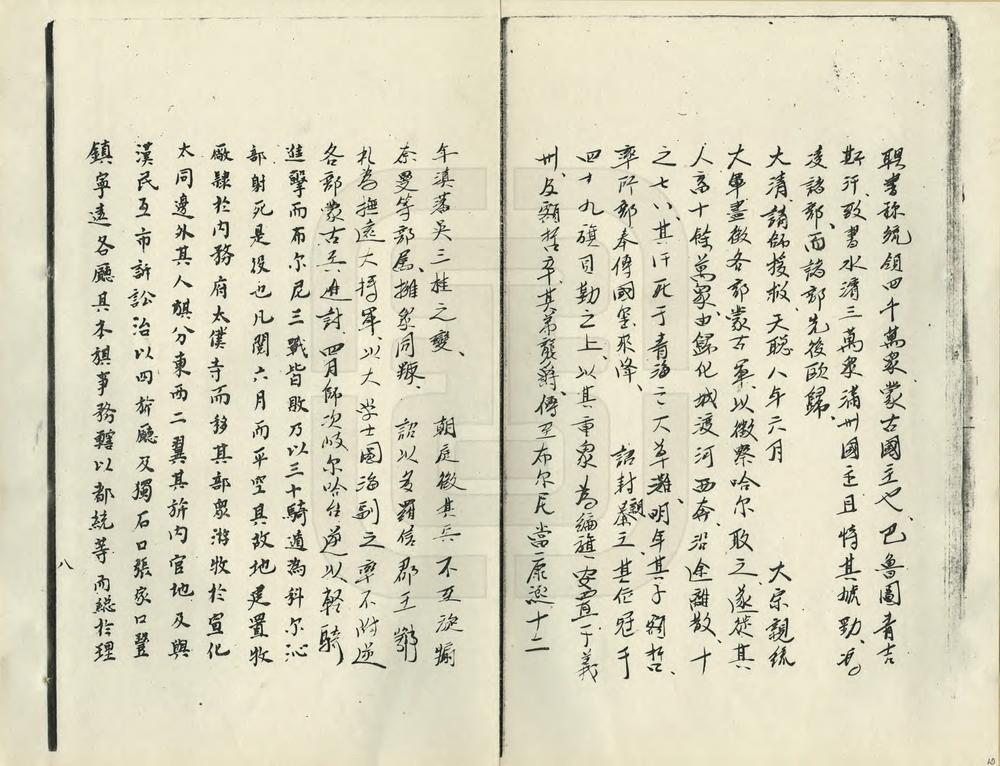 聘書称統領四十萬眾蒙古國主也、巴魯圖青吉
斯汗致書水濱三萬眾滿州國主且恃其虣勁、
凌諸部、而諸部先後欧歸、
大清請師援救天聪八年六月　大宗親統
大軍盡徵各部蒙古軍以徵察哈尔取之遂徙其
人畜十餘萬眾由歸化城渡河西奔、沿途離散、十
之七八、其汗死于青海之大草灘、明年其子額哲、
率所部奉傳國璽来降、　詔封親王、其位冠于
四十九旗貝勒之上、以其重眾為編旗安置于義
州、及額哲卒其弟襲爵、傳至布尔尼當康熙十二
年滇藩吳三桂之變、　朝庭徵其兵不至旋煽
奈曼等部属、擁眾同叛　詔以多羅信郡王鄂
札為撫遠大將軍、以大學士圖海副之率不附逆
各部蒙古兵進討四月師次岐尔哈台逆以軽騎
進擊而布尔尼三戰皆敗乃以三十騎遁為科尔沁
部射死是役也凡閱六月而平空其故地建置牧
廠隸於内務府太僕寺而移其部眾游牧於宣化
大同邊外其人旗分東西二翼其旂内官地及與
漢民互市訴訟治以四旂廳及獨石口張家口豐
鎮寧遠各廳其本旗事務轄以都統等而縂於理
八
10